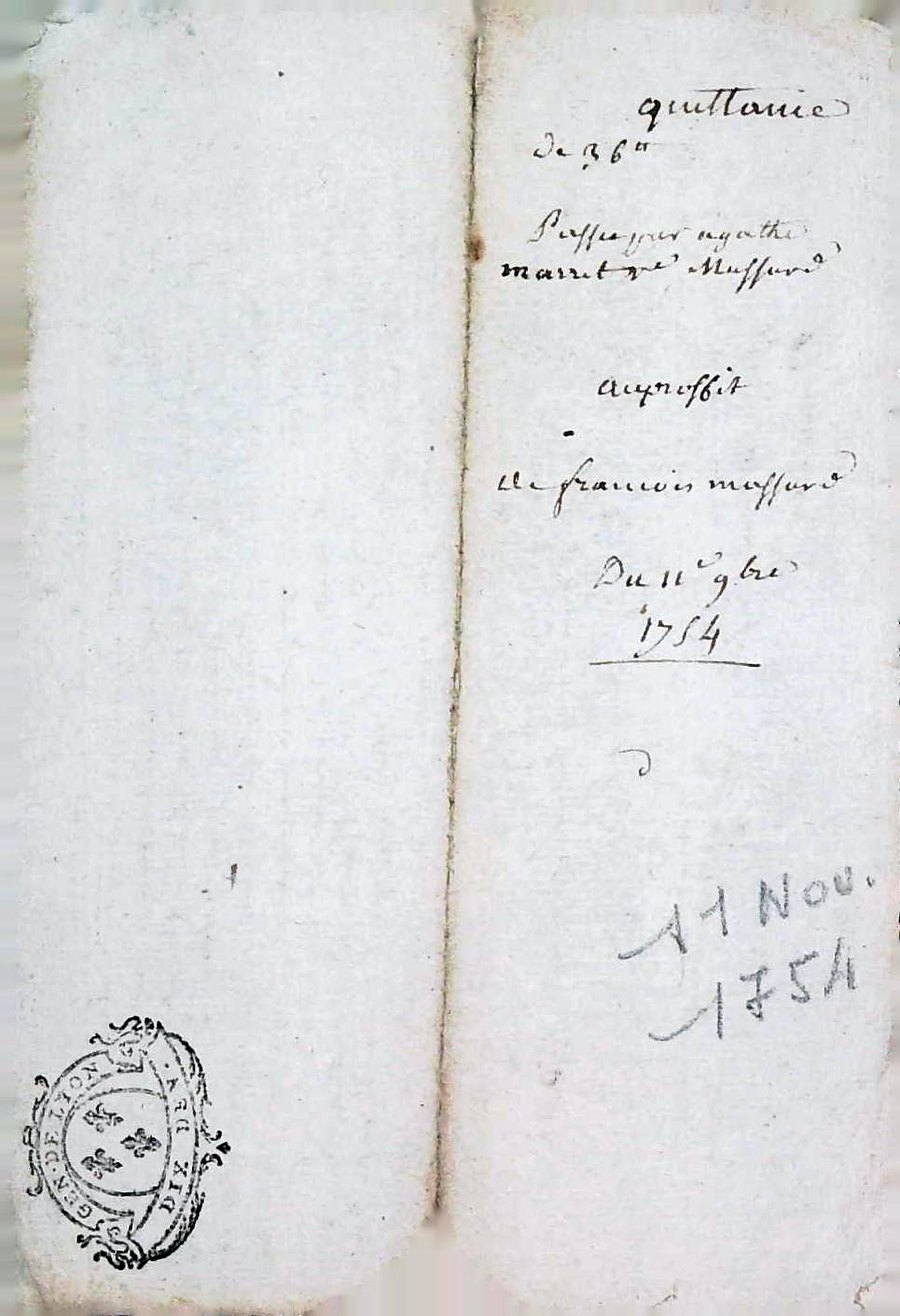 quittance
de 36 ₶
Passée par agathe
marret vve Massard
au proffit
de francois massard
Du 11e 9bre
1754
11 Nov.
1754
GEN · DE LYON
DIX